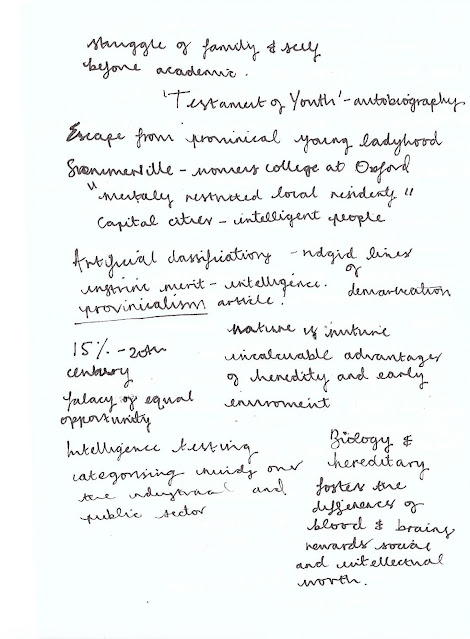 struggle of family & self
before academic.
'Testament of Youth' - autobiography
Escape from provinical young ladyhood
Sommerville - womens college at Oxford
"mentaly restricted local residents"
Capital cities - intelligent people
Artificial classifications - ridgid lines
of
demarcation
instrinc merit - intelligence.
provinicalism article.
15% - 20th
century
falacy of equal
opportunity
nature is nuture
incalcuable advantages
of heredity and early
enviroment
Intelligence testing
categorising minds over
the industrial and
public sector
Biology &
hereditary
foster the
differences of
blood & brains
rewards social
and intellectual
worth.